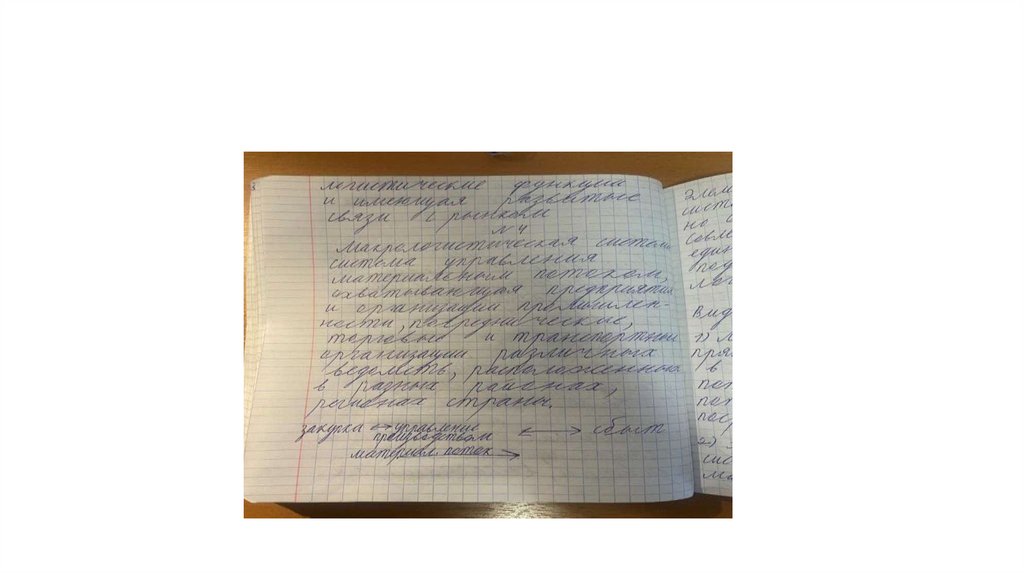 логистические функции
и имеющая развитые
связи с рынком
№ 4
Макрологистическая система
система управления
материальным потоком,
охватывающая предприятия
и организации промышлен-
ности, посреднические,
торговые и транспортные
организации различных
ведомств, расположенных
в разных районах,
регионах страны.
закупка ↔ управление производством ⟷ сбыт
материал. поток →
Элем
систе
но
един
под
Вид
1) М
пря
в
пот
пот
пос
2)
сис
ма